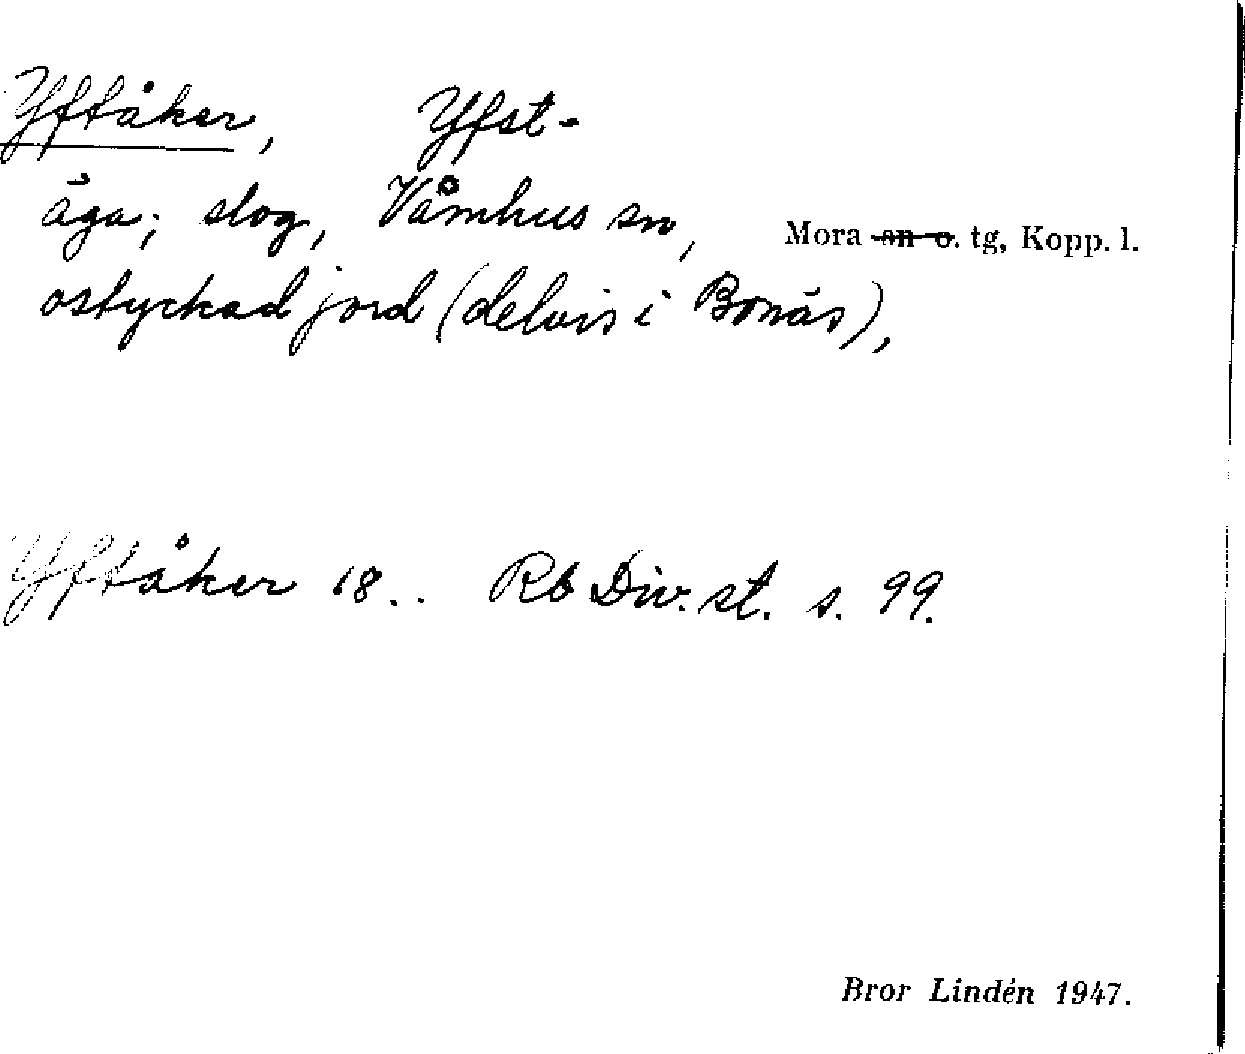 Yftåker, Yfst-
åga; slog, Våmhus sn,
Mora sn o. tg, Kopp. l.
ostyckad jord (delvis i Bonäs),
Yftåker 18.. Rb Div. st. s. 99.
Bror Lindén 1947.